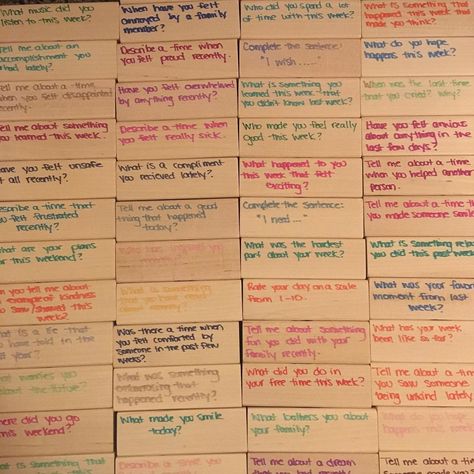 What music did you
listen to this week?
When have you felt
annoyed by a family
member?
Who did you spend a lot
of time with this week?
What is something that
happened this week that
made you think?
Tell me about an
accomplishment you
had lately?
Describe a time when
you felt proud recently.
Complete the Sentence:
"I wish ....."
What do you hope
happens this week?
Tell me about a time
when you felt disappointed
recently.
Have you felt overwhelmed
by anything recently?
What is something you
learned this week that
you didn't know last week?
When was the last time
that you cried? Why?
Tell me about something
you learned this week.
Describe a time when
you felt really sick.
Who made you feel really
good this week?
Have you felt anxious
about anything in the
last few days?
Have you felt unsafe
at all recently?
What is a compliment
you recieved lately?
What happened to you
this week that felt
exciting?
Tell me about a time
when you helped another
person.
Describe a time that
you felt frustrated
recently?
Tell me about a good
thing that happened
today?
Complete the Sentence:
"I need ..."
Tell me about a time
you made someone smile
What are your plans
for this weekend?
What was the hardest
part about your week?
What is something
you did this past week
you tell me about
example of kindness
this week?
What is something
that
Rate your day on a scale
from 1-10.
What was your
moment from last
week?
is a lie that
have told in the
Was there a time when
you felt comforted by
someone in the past few
weeks?
Tell me about something
fun you did with your
family recently.
What has your week
been like so far?
worries you
about the future?
What was something
embarrassing that
happened recently?
What did you do in
your free time this week?
Tell me about a time
you saw someone
being unkind lately
Where did you go
this weekend?
What made you smile
today?
What bothers you about
your family?
is something that
Describe a time when
Tell me about a dream
Tell me about a time